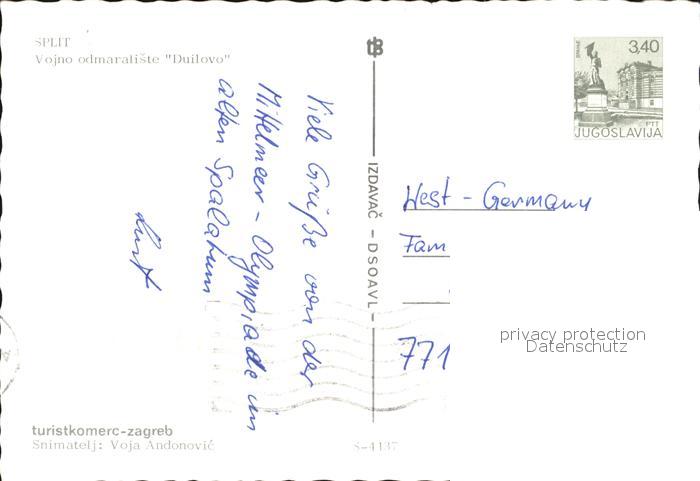 SPLIT
Vojno odmaralište "Duilovo"
Viele Grüße von der
Mittelmeer - Olympiade im
alten Spalatum
IZDAVAČ – DSOAVL –
3,40
PTT
JUGOSLAVIJA
West - Germany
Fam
771
privacy protection
Datenschutz
turistkomerc-zagreb
Snimatelj: Voja Andonović
S-4137